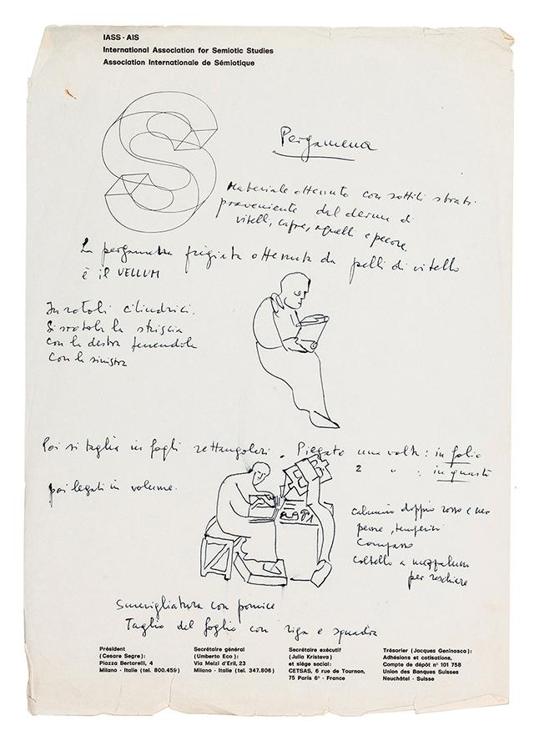 IASS - AIS
International Association for Semiotic Studies
Association Internationale de Sémiotique
S
Pergamena
Materiale ottenuto con sottili strati
proveniente dal derma di
vitelli, capre, agnelli e pecore
La pergamena pregiata ottenuta da pelli di vitello
è il VELLUM
In rotoli cilindrici.
Si srotola la striscia
con la destra tenendola
con la sinistra
Poi si taglia in fogli rettangolari. Piegato una volta: in folio
2 " : in quarto
poi legati in volume.
calamaio doppio rosso e nero
penne, temperini
Compasso
coltello a mezzaluna
per raschiare
Smerigliatura con pomice
Taglio del foglio con riga e squadra
Président
(Cesare Segre):
Piazza Bertarelli, 4
Milano - Italie (tel. 800.459)
Secrétaire général
(Umberto Eco):
Via Melzi d'Eril, 23
Milano - Italie (tel. 347.806)
Secrétaire exécutif
(Julia Kristeva)
et siège social:
CETSAS, 6 rue de Tournon,
75 Paris 6e - France
Trésorier (Jacques Geninasca):
Adhésions et cotisations,
Compte de dépôt n° 101 758
Union des Banques Suisses
Neuchâtel - Suisse